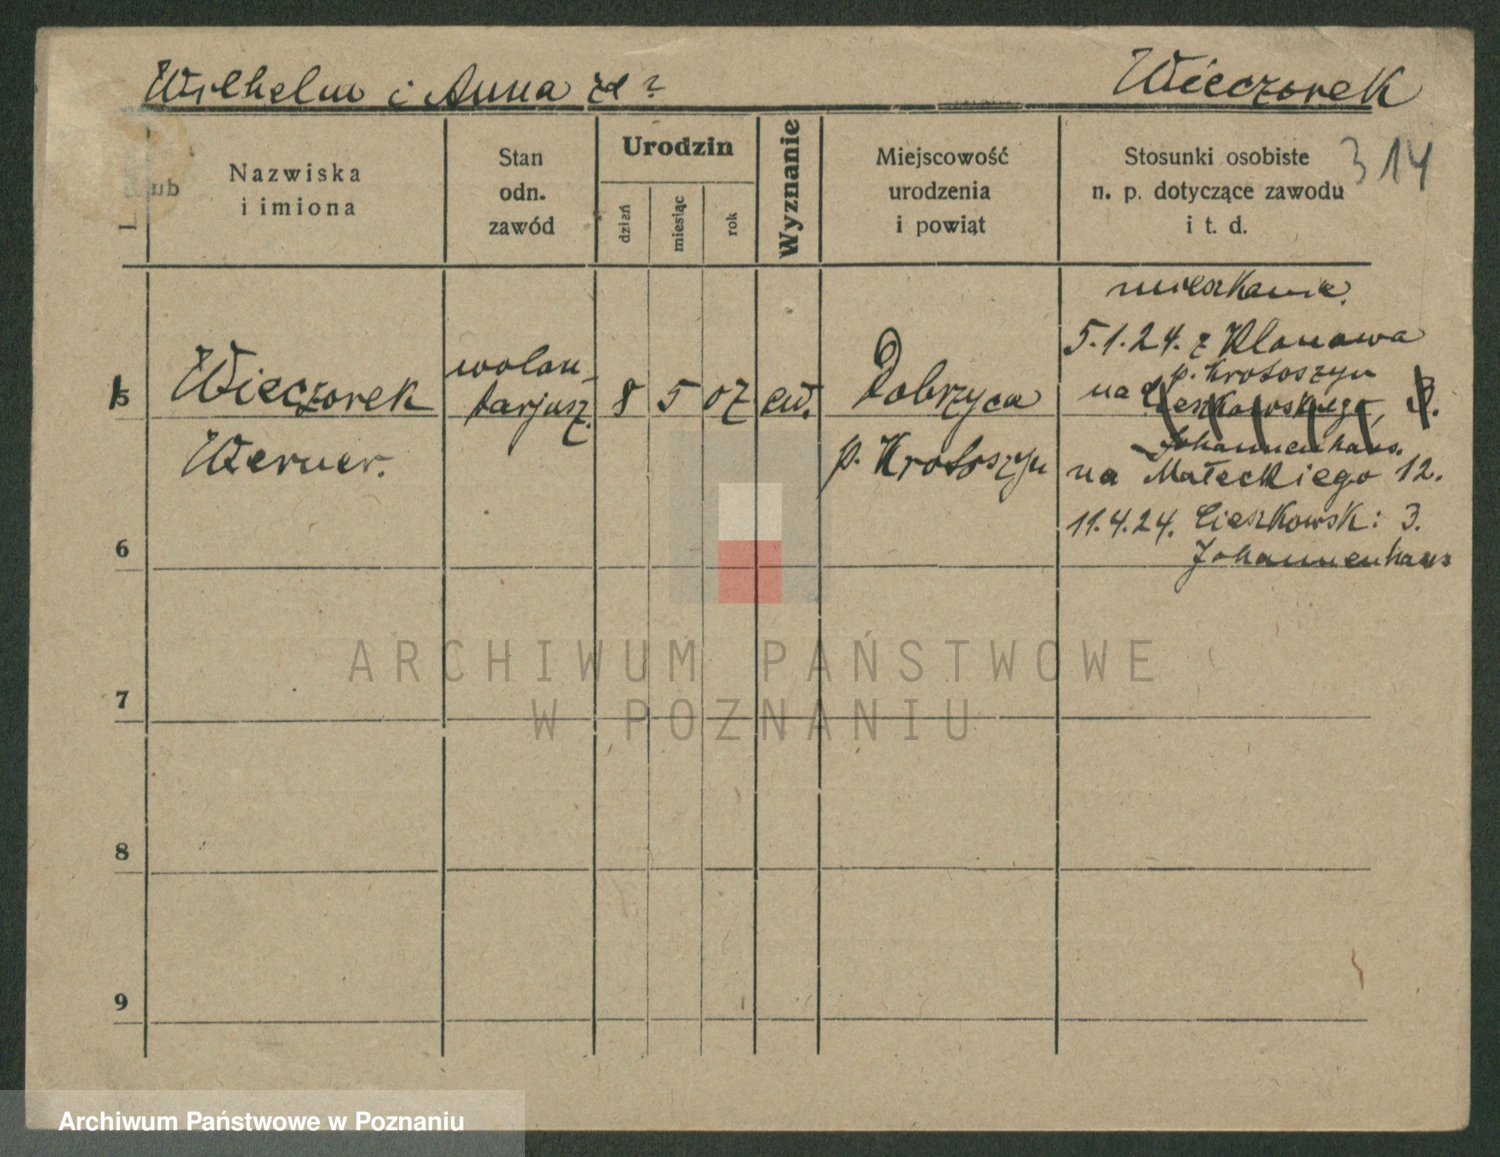 Wilhelm i Anna zd ?
Wieczorek
314
L
ub
Nazwiska
i imiona
Stan
odn.
zawód
Urodzin
dzień
miesiąc
rok
Wyznanie
Miejscowość
urodzenia
i powiąt
Stosunki osobiste
n. p. dotyczące zawodu
i t. d.
mieszkanie.
5.1.24. z Klonowa
p. Krotoszyn
na Cieszkowskiego, 3.
Johannenhaus.
na Małeckiego 12.
11.4.24. Cieszkowsk: 3.
Johannenhaus
5
Wieczorek
Werner.
wolon-
tarjusz.
8
5
07
ew.
Dobrzyca
p. Krotoszyn
6
7
8
9
ARCHIWUM PAŃSTWOWE
W POZNANIU
Archiwum Państwowe w Poznaniu